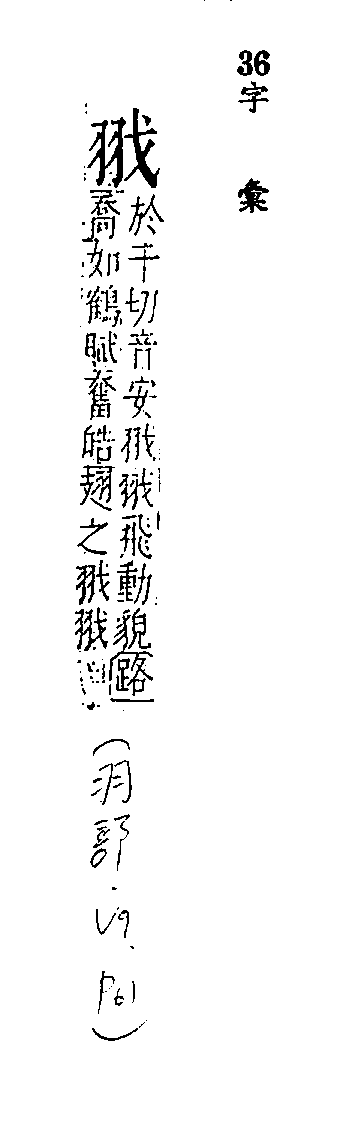 36字彙
於干切音安飛動貌路
喬如鶴賦奮皓翅之
(羽部.V9.P61)